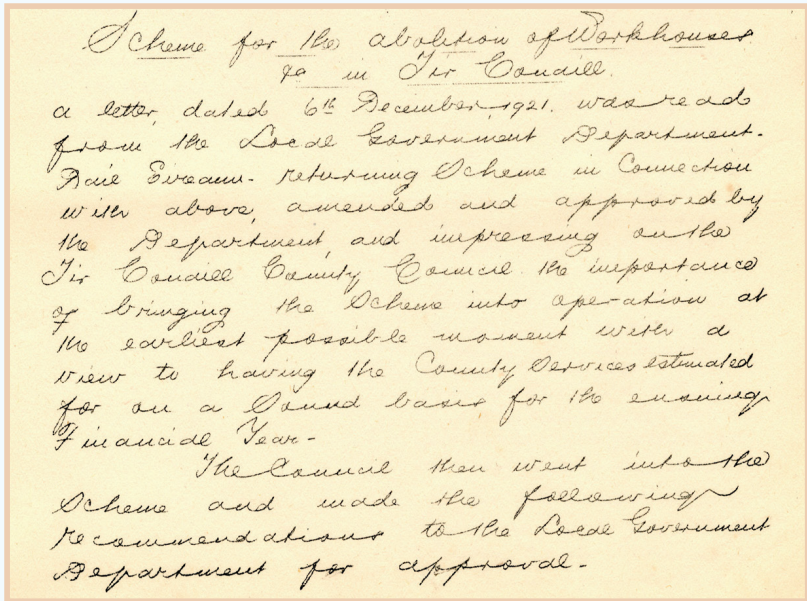 Scheme for the abolition of Workhouses
&c in Tir Conaill.
a letter, dated 6th December, 1921. was read
from the Local Government Department.
Dail Eireann - returning Scheme in Connection
with above, amended and approved by
the Department, and impressing on the
Tir Conaill County Council the importance
of bringing the Scheme into operation at
the earliest possible moment with a
view to having the County Services estimated
for on a Sound basis for the ensuing
Financial Year -
The Council then went into the
Scheme and made the following
recommendations to the Local Government
Department for approval. -